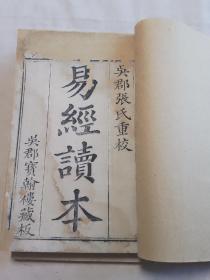 吳郡張氏重校
易經讀本
吳郡寶翰樓藏板